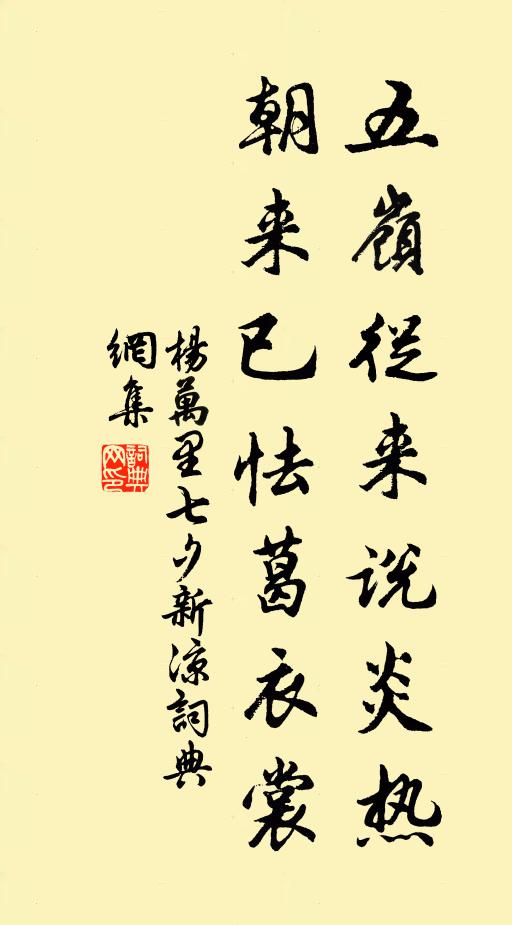 五嶺從来説炎热
朝来已怯葛衣裳
楊萬里七夕新涼詞典
網集
詞典
网印